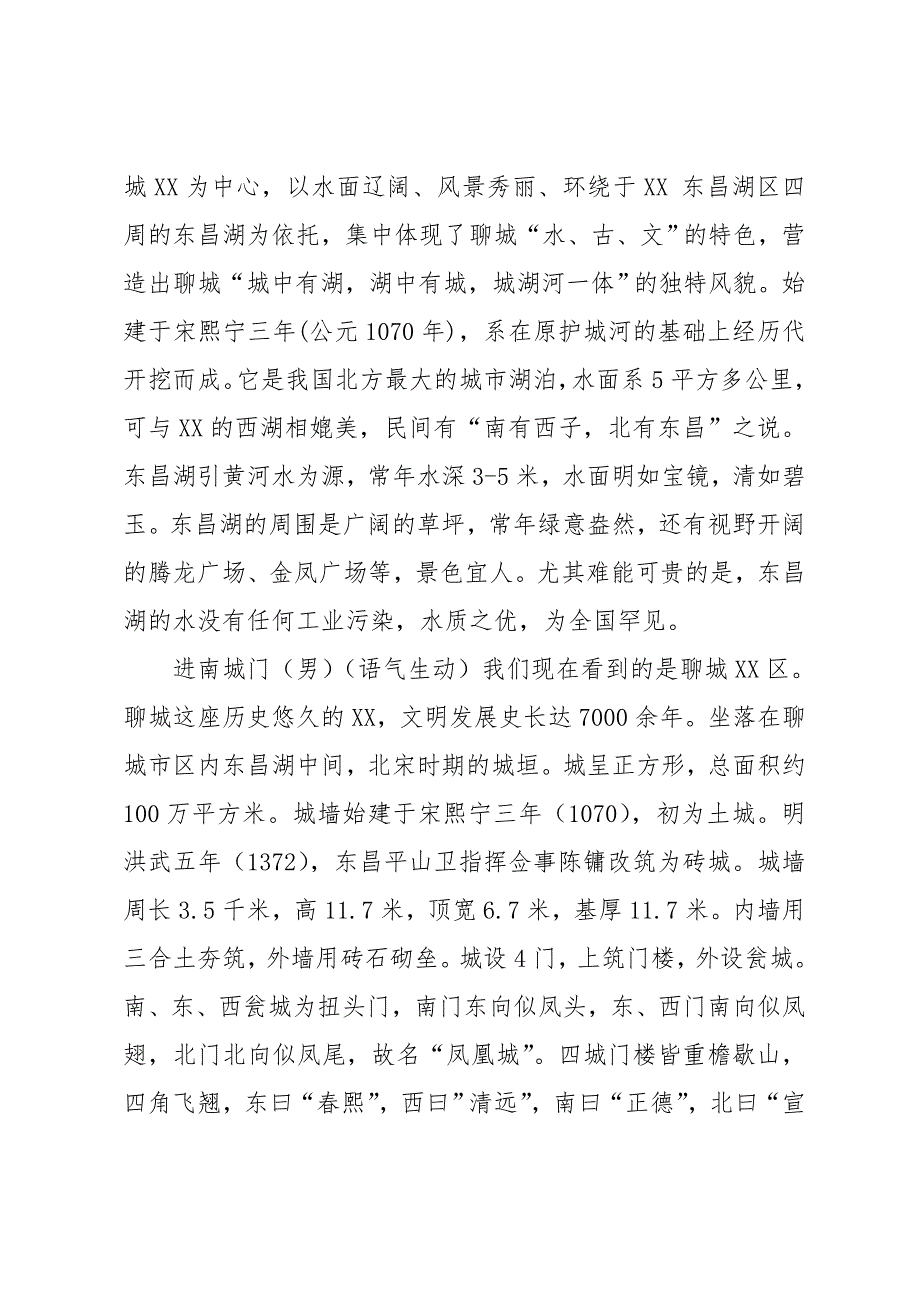 城XX为中心，以水面辽阔、风景秀丽、环绕于XX 东昌湖区四
周的东昌湖为依托，集中体现了聊城“水、古、文”的特色，营
造出聊城“城中有湖，湖中有城，城湖河一体”的独特风貌。始
建于宋熙宁三年(公元1070年)，系在原护城河的基础上经历代
开挖而成。它是我国北方最大的城市湖泊，水面系5平方多公里，
可与XX的西湖相媲美，民间有“南有西子，北有东昌”之说。
东昌湖引黄河水为源，常年水深3-5米，水面明如宝镜，清如碧
玉。东昌湖的周围是广阔的草坪，常年绿意盎然，还有视野开阔
的腾龙广场、金凤广场等，景色宜人。尤其难能可贵的是，东昌
湖的水没有任何工业污染，水质之优，为全国罕见。
进南城门（男）（语气生动）我们现在看到的是聊城XX区。
聊城这座历史悠久的XX，文明发展史长达7000余年。坐落在聊
城市区内东昌湖中间，北宋时期的城垣。城呈正方形，总面积约
100万平方米。城墙始建于宋熙宁三年（1070），初为土城。明
洪武五年（1372），东昌平山卫指挥佥事陈镛改筑为砖城。城墙
周长3.5千米，高11.7米，顶宽6.7米，基厚11.7米。内墙用
三合土夯筑，外墙用砖石砌垒。城设4门，上筑门楼，外设瓮城。
南、东、西瓮城为扭头门，南门东向似凤头，东、西门南向似凤
翅，北门北向似凤尾，故名“凤凰城”。四城门楼皆重檐歇山，
四角飞翘，东曰“春熙”，西曰”清远”，南曰“正德”，北曰“宣